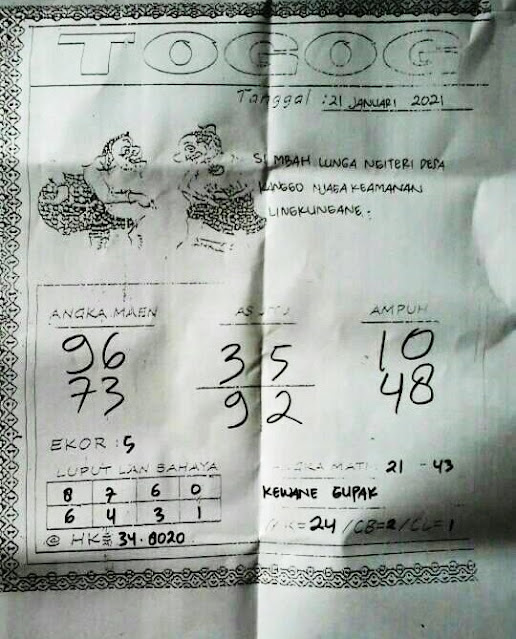 TOGOG
Tanggal : 21 JANUARI 2021
SIMBAH LUNGA NGITERI DESA
KANGGO NJAGA KEAMANAN
LINGKUNGANE.
ANGKA MAEN
96
73
3 5
9 2
AMPUH
10
48
EKOR : 5
LUPUT LAN BAHAYA
8 7 6 0
6 4 3 1
ANGKA MATI : 21 - 43
KEWANE GUPAK
= 24 /CB=2/CL=1
@ HK= 34.8020